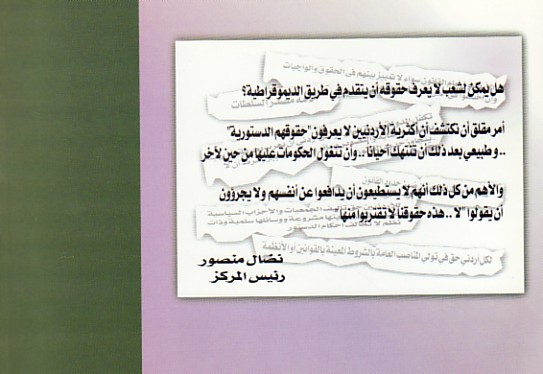 هل يمكن لشعب لا يعرف حقوقه أن يتقدم في طريق الديموقراطية؟
أمر مقلق أن نكتشف أن أكثرية الأردنيين لا يعرفون "حقوقهم الدستورية"
.. وطبيعي بعد ذلك أن تنتهك أحيانا .. وأن تتغول الحكومات عليها من حين لآخر
والأهم من كل ذلك أنهم لا يستطيعون أن يدافعوا عن أنفسهم ولا يجرؤون
أن يقولوا "لا .. هذه حقوقنا لا تقتربوا منها
لكل أردني حق في تولي المناصب العامة بالشروط المعينة بالقوانين او الأنظمة
نضال منصور
رئيس المركز